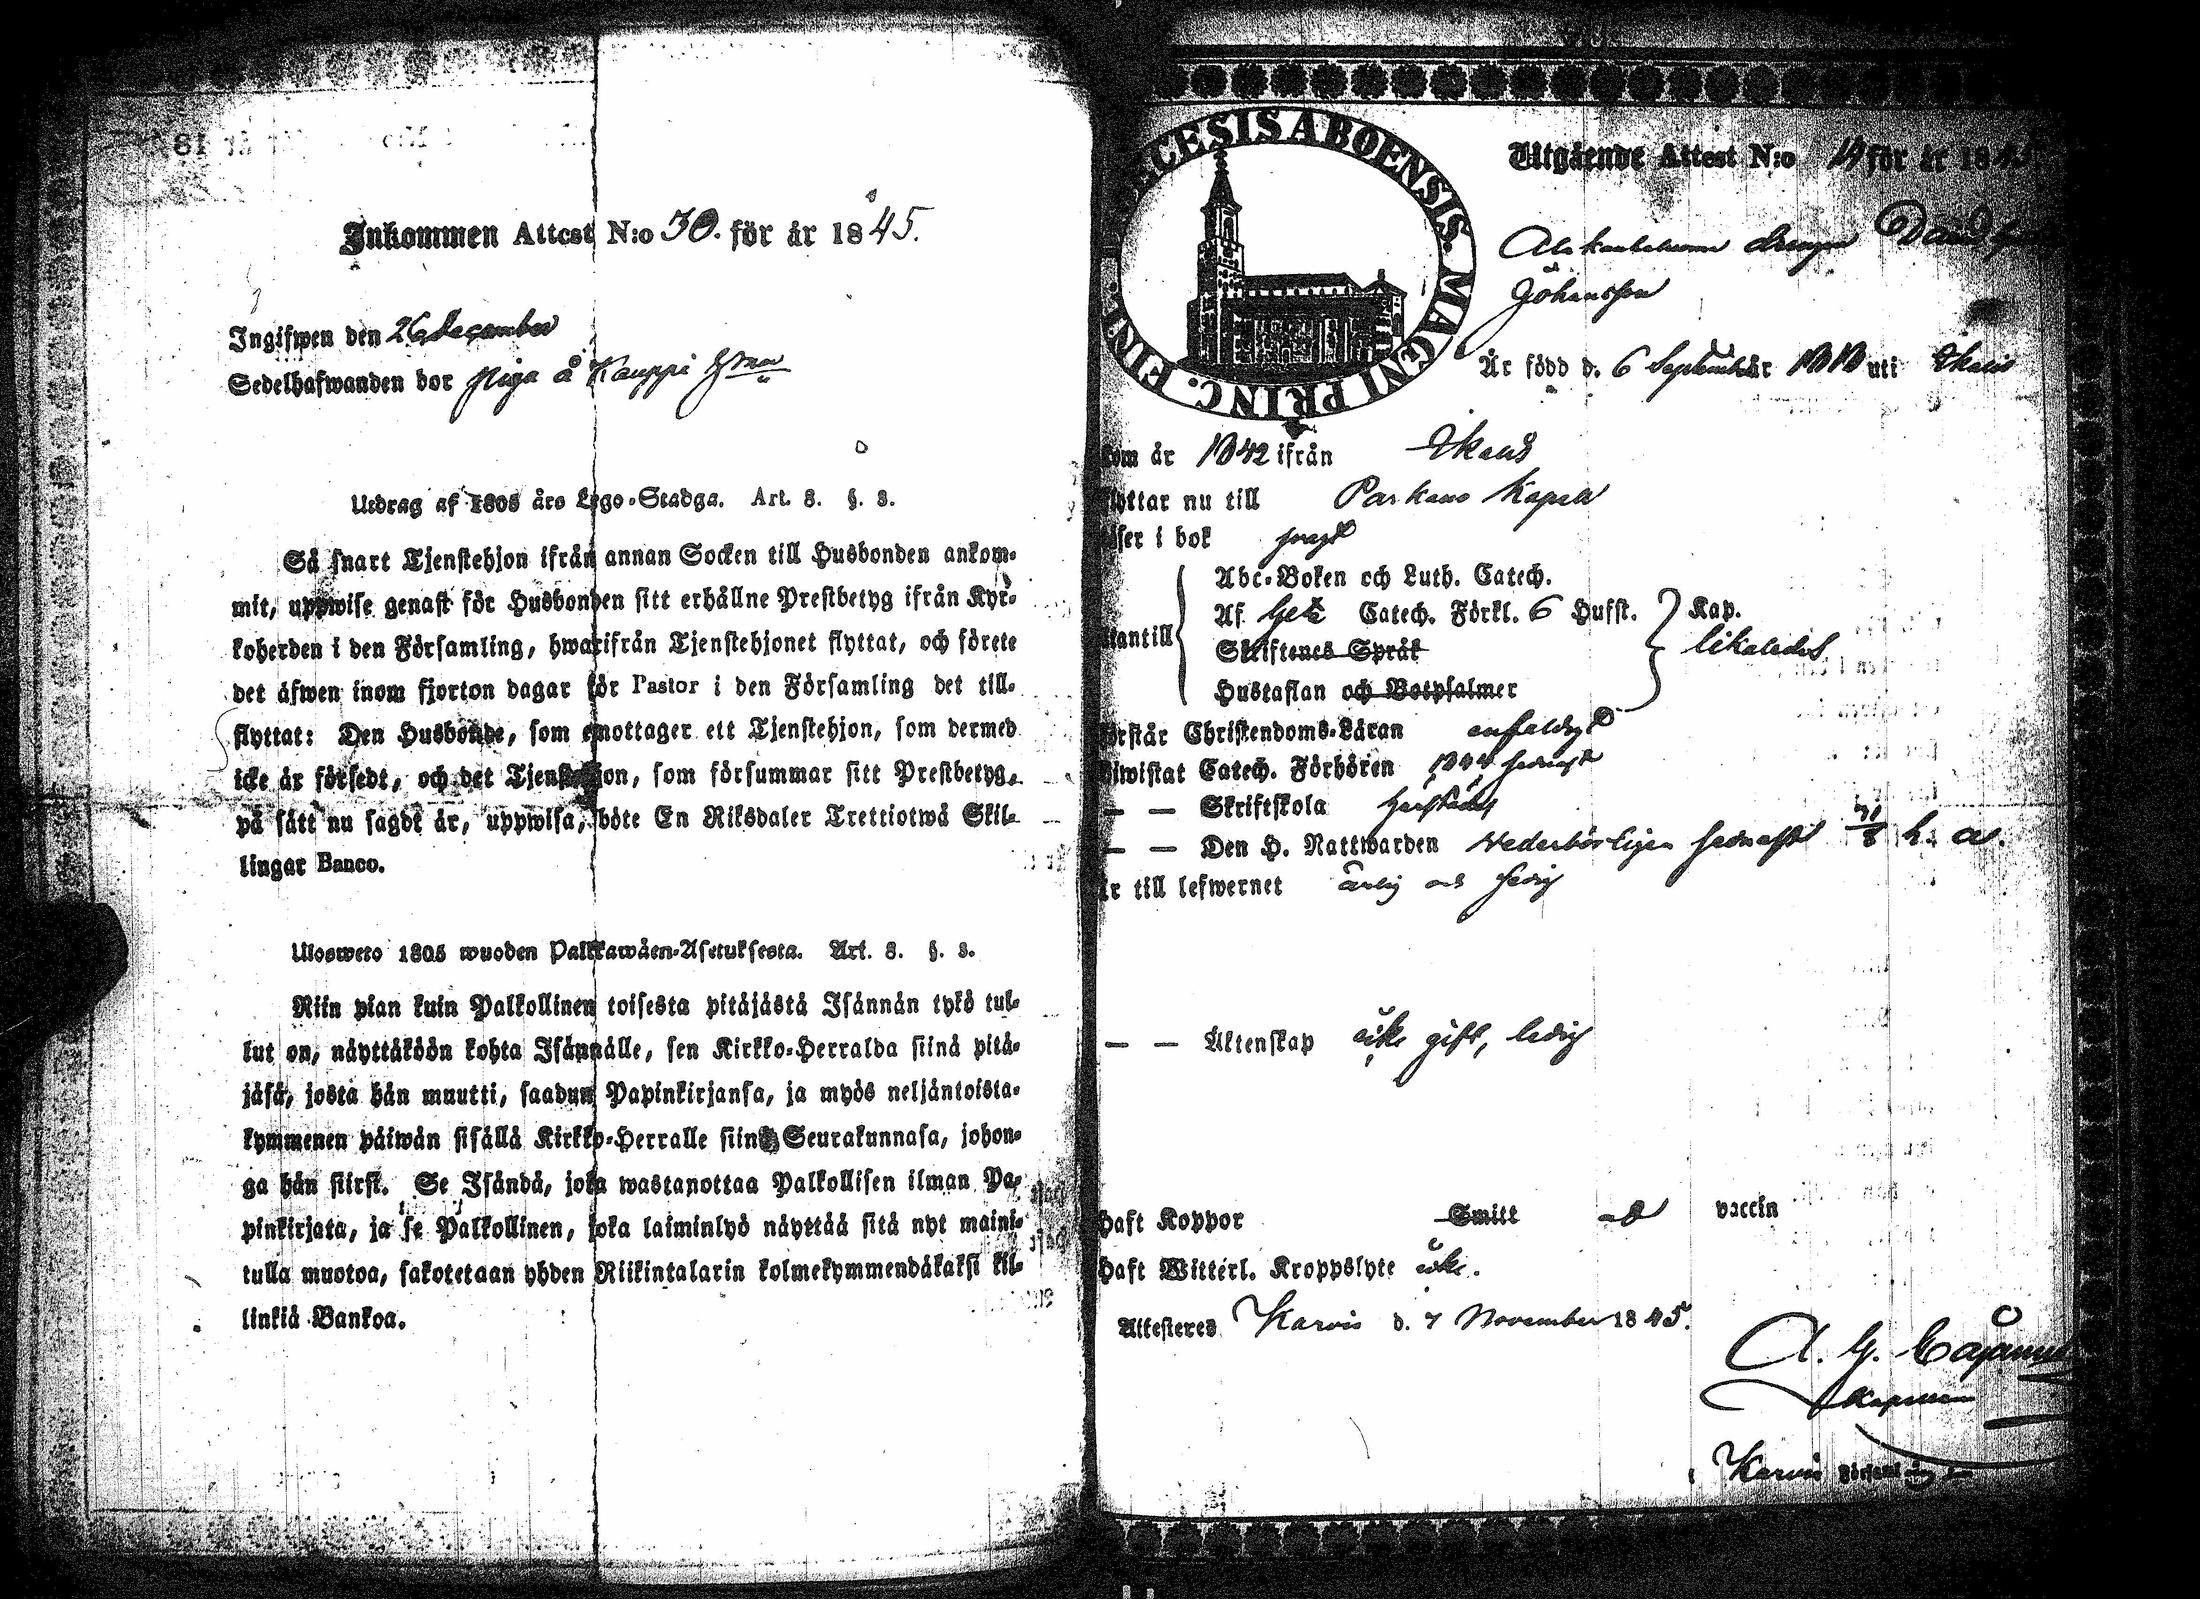 Inkommen Attest N:o 30. för år 1845.
Ingifwen den 26 december
Sedelhafwanden bor piga å Kauppi
Utdrag af 1805 års Lego-Stadga. Art. 8. §. 3.
Så snart Tjenstehjon ifrån annan Socken till Husbonden ankom-
mit, uppwise genast för Husbonden sitt erhållne Prestbetyg ifrån Kyr-
koherden i den Församling, hwarifrån Tjenstehjonet flyttat, och förete
det äfwen inom fjorton dagar för Pastor i den Församling det till-
flyttat: Den Husbonde, som emottager ett Tjenstehjon, som dermed
icke är försedt, och det Tjenstehjon, som försummar sitt Prestbetyg,
på sätt nu sagdt är, uppwisa, böte En Riksdaler Trettiotwå Skil-
lingar Banco.
Ulosweto 1805 wuoden Palkkawäen-Asetuksesta. Art. 8. §. 3.
Niin pian kuin Palkollinen toisesta pitäjästä Isännän tykö tul-
lut on, näyttäköön kohta Isännälle, sen Kirkko-Herralda siinä pitä-
jäsä, josta hän muutti, saadun Papinkirjansa, ja myös neljäntoista-
kymmenen päiwän sisällä Kirkko-Herralle siinä Seurakunnasa, johon-
ga hän siirsi. Se Isändä, joka wastanottaa Palkollisen ilman Pa-
pinkirjata, ja se Palkollinen, joka laiminlyö näyttää sitä nyt maini-
tulla muotoa, sakotetaan yhden Riikintalarin kolmekymmendäkaksi kil-
linkiä Bankoa.
DIOECESIS ABOENSIS. MAGNI PRINC. FINL.
Utgående Attest N:o 14 för år 1845
drengen David
Johansson
Är född d. 6 September år 1818 uti Ikalis
Kom år 1842 ifrån Ikalis
Flyttar nu till Parkano Kapell
Läser i bok svagt
Utantill
Abc-Boken och Luth. Catech.
Af Catech. Förkl. 6 Hufst.
Skriftenes Språk
Hustaflan och Botpsalmer
Kap.
likaledes
Förstår Christendoms-Läran enfaldigt
Biwistat Catech. Förhören 1844 sednast
— — Skriftskola
— — Den H. Nattwarden Wederbörligen sednast h. a.
Är till lefwernet ärlig och sedig
— — Äktenskap icke gift, ledig
Haft Koppor Smitt vaccin
Haft Witterl. Kroppslyte icke.
Attesteres Karvia d. 7 November 1845.
A. G. Cajanus
Kapellan
Karvia